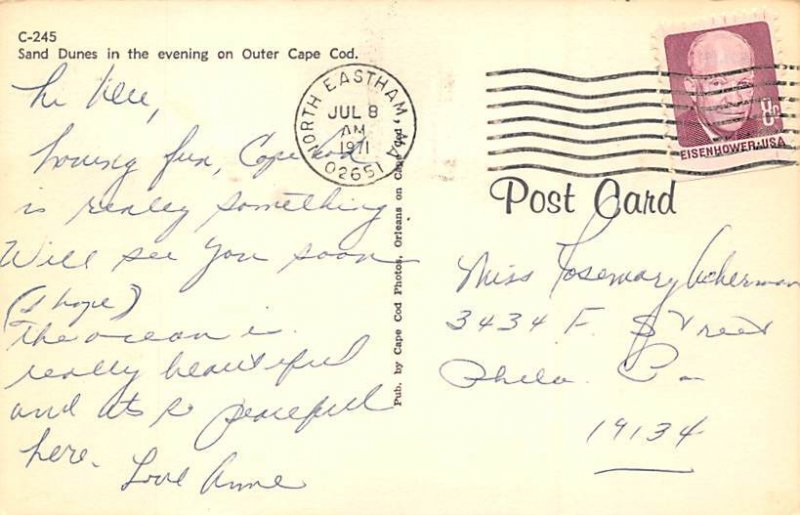 C-245
Sand Dunes in the evening on Outer Cape Cod.
Hi
having fun, Cape Cod
is really something
Will see you soon
(I hope)
The ocean is
really beautiful
and its so peaceful
here.
Love Anne
Pub. by Cape Cod Photos, Orleans on Cape Cod, 
NORTH EASTHAM, MA
JUL 8
AM
1971
02651
8c
EISENHOWER·USA
Post Card
Miss Rosemary Ackerman
3434 F. Street
Phila. Pa
19134